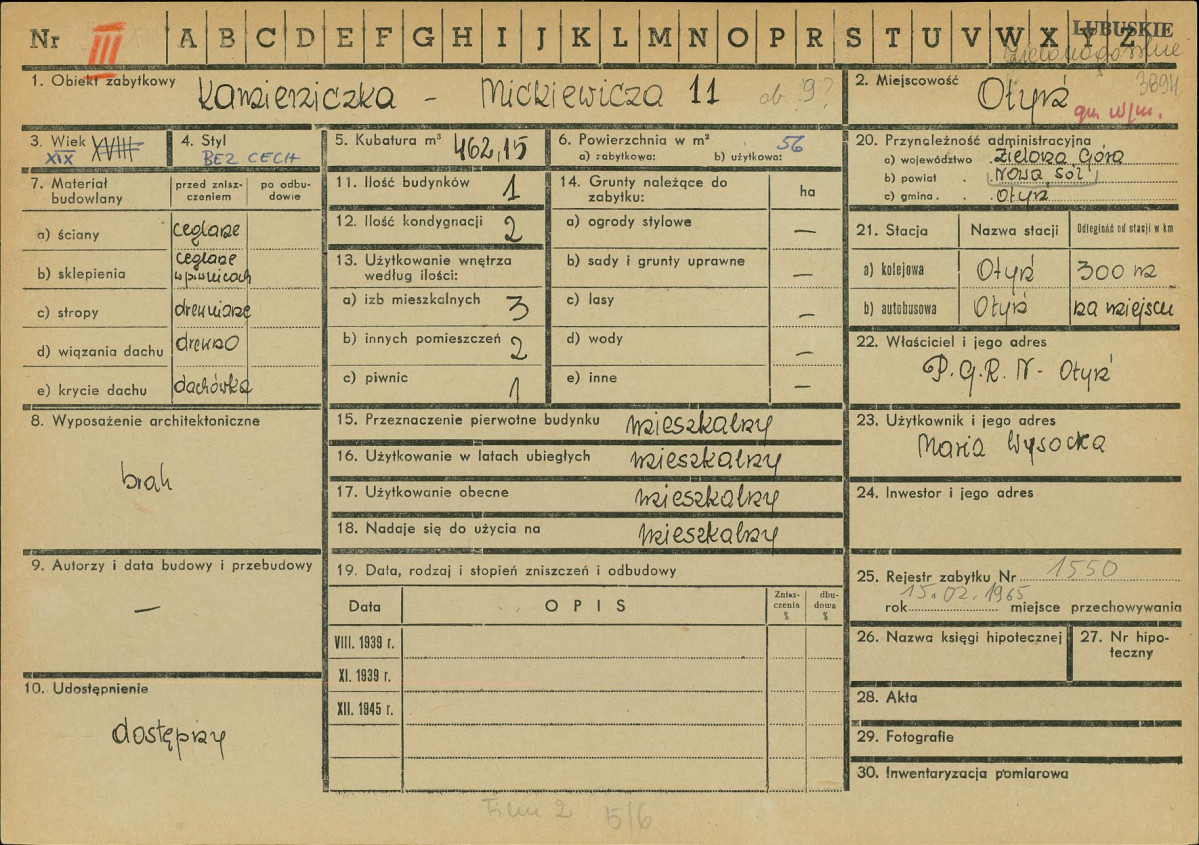 Nr III A B C D E F G H I J K L M N O P R S T U V W X Y Z LUBUSKIE
zielonogórskie
1. Obiekt zabytkowy Kamieniczka - Mickiewicza 11 ob. 9?
2. Miejscowość Otyń 3894
gm. w/m.
3. Wiek XVIII XIX
4. Styl BEZ CECH
5. Kubatura m³ 462,15
6. Powierzchnia w m² 56
a) zabytkowa: b) użytkowa:
7. Materiał budowlany
przed zniszczeniem
po odbudowie
a) ściany ceglane
b) sklepienia ceglane w piwnicach
c) stropy drewniane
d) wiązania dachu drewno
e) krycie dachu dachówka
8. Wyposażenie architektoniczne
brak
9. Autorzy i data budowy i przebudowy
—
10. Udostępnienie
dostępny
11. Ilość budynków 1
12. Ilość kondygnacji 2
13. Użytkowanie wnętrza według ilości:
a) izb mieszkalnych 3
b) innych pomieszczeń 2
c) piwnic 1
14. Grunty należące do zabytku: ha
a) ogrody stylowe —
b) sady i grunty uprawne —
c) lasy —
d) wody —
e) inne —
15. Przeznaczenie pierwotne budynku mieszkalny
16. Użytkowanie w latach ubiegłych mieszkalny
17. Użytkowanie obecne mieszkalny
18. Nadaje się do użycia na mieszkalny
19. Data, rodzaj i stopień zniszczeń i odbudowy
Data OPIS Zniszczenia % dbudowa %
VIII. 1939 r.
XI. 1939 r.
XII. 1945 r.
20. Przynależność administracyjna
a) województwo Zielona Góra
b) powiat Nowa Sól
c) gmina Otyń
21. Stacja Nazwa stacji Odległość od stacji w km
a) kolejowa Otyń 300 m
b) autobusowa Otyń na miejscu
22. Właściciel i jego adres
P.G.R.N - Otyń
23. Użytkownik i jego adres
Maria Wysocka
24. Inwestor i jego adres
25. Rejestr zabytku Nr 1550
15.02.1965
rok miejsce przechowywania
26. Nazwa księgi hipotecznej
27. Nr hipoteczny
28. Akta
29. Fotografie
30. Inwentaryzacja pomiarowa
Film 2 5/6